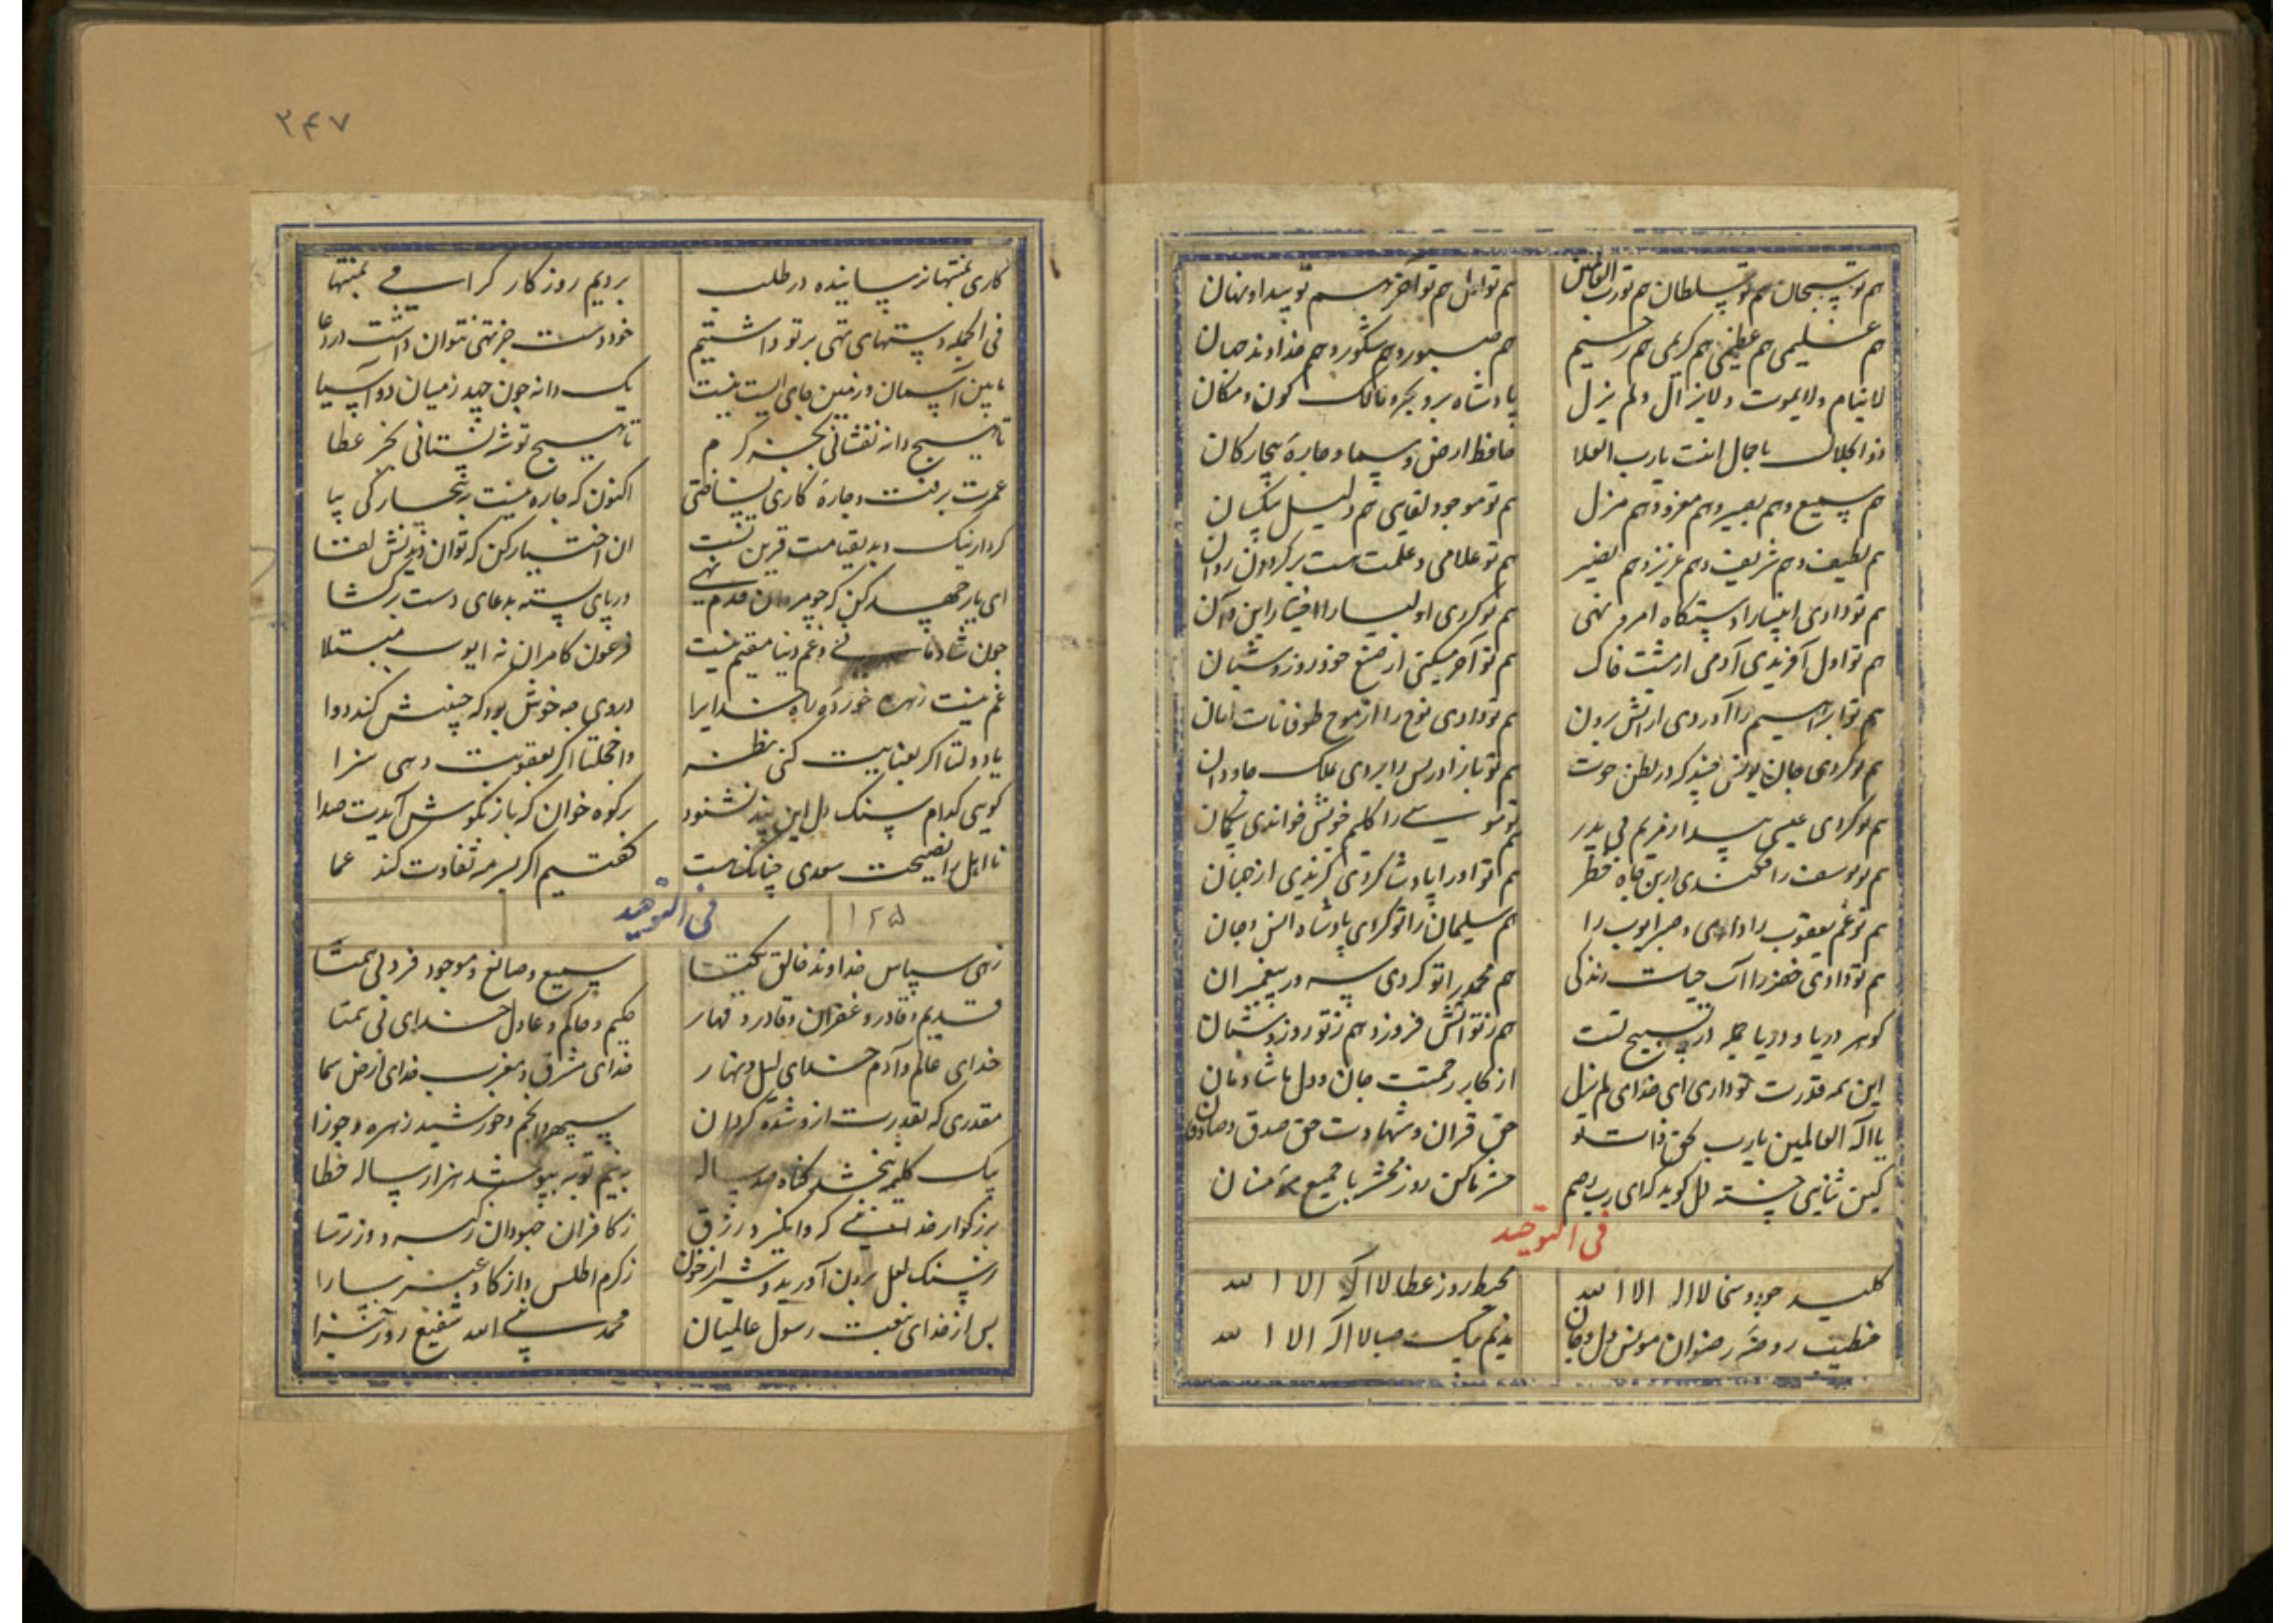 هم تو سبحان هم تو سلطان هم تو رب العالمین هم تو اول هم تو آخر هم تو پیدا و نهان
هم علیمی هم عظیمی هم کریمی هم رحیم هم صبور و هم شکور و هم خداوند جهان
لاینام و لایموت و لایزال و لم یزل پادشاه بر و بحر و مالک کون و مکان
ذو الجلال با جمال انت یا رب العلا حافظ ارض و سما و چارۀ بیچارکان
هم سمیع و هم بصیر و هم معز و هم مزل هم تو موجود لقایی هم دلیل بیکسان
هم لطیف و هم شریف و هم عزیز و هم نصیر هم تو علامی و علمت هست بر کردون روان
هم تو دادی انبیا را دستکاه امر و نهی هم تو کردی اولیا را اختیار این و آن
هم تو اول آفریدی آدمی از مشت خاک هم تو آخر میکنی از صنع خود روز و شبان
هم تو ابراهیم را آوردی از آتش برون هم تو دادی نوح را از موج طوفانات امان
هم تو کردی جان یونس در بطن حوت هم تو باز ادریس را بردی بملک جاودان
هم تو کردی عیسی پیدا ز مریم بی پدر هم تو موسی را کلیم خویش خواندی بیکمان
هم تو یوسف را فکندی در بن چاه خطر هم تو او را پادشا کردی کزیدی از جهان
هم تو غم یعقوب را دادی و صبر ایوب را هم سلیمان را تو کردی پادشاه انس و جان
هم تو دادی خضر را آب حیات زندکی هم محمد را تو کردی سرور پیغمبران
کوهر دریا و دریا جمله در تسبیح تست هم ز تو آتش فروزد هم ز تو روز و شبان
این همه قدرت تو داری ای خدای لم یزل از کار رحمتت جان و دل ما شادمان
یا اله العالمین یا رب بحق ذات تو حق قران و شهادت حق صدق و صادقان
کین ثنایی خسته دل کوید که ای رب رحیم حشر ما کن روز محشر با جمیع مؤمنان
فی التوحید
کلید جود و سخا لا اله الا الله محیط روز عطا لا اله الا الله
خطیب روضۀ رضوان مونس دل و جان ندیم پیک صبا لا اله الا الله
۲۴۷
کاری بمنتها نرسانیده در طلب بردیم روز کار کرامی بمنتها
فی الجمله دستهای تهی بر تو داشتیم خود دست جز تهی نتوان داشت در دعا
مابین آسمان و زمین جای ایست نیست یک دانه چون جهد ز میان دو آسیا
تا هیچ دانه نفشانی بجز کرم تا هیچ توشه نستانی بجز عطا
عمرت برفت و چارۀ کاری نساختی اکنون که چاره نیست به بیچارکی بیا
کردار نیک و بد بقیامت قرین تست ان اختیار کن که توان دیدنش لقا
ای یار جهد کن که چو مردان قدم نهی ور پای بسته به دعای دست بر کشا
چون شادمانی و غم دنیا مقیم نیست فرعون کامران نه ایوب مبتلا
غم نیست زهره خوردۀ راه خدایرا دردی چه خوش بود که چنینش کند دوا
یا دولتا اکر بعنایت کنی نظر واخجلتا اکر بعقوبت دهی سزا
کویی کدام سنک دل این پند نشنود بر کوه خوان که باز بکوش آیدت صدا
نا اهل را نصیحت سعدی چنانک هست کفتیم اکر بسرمه تفاوت کند عما
۱۲۵ فی التوحید
زهی سپاس خداوند خالق یکتا سمیع و صانع و موجود فرد بی همتا
قدیم و قادر و غفران و قادر و قهار حکیم و حاکم و عادل خدای بی همتا
خدای عالم و آدم خدای لیل و نهار خدای مشرق و مغرب خدای ارض سما
مقدری که بقدرت ازو شده کردان سپهر و انجم و خورشید زهره و جوزا
بیک کلمه ببخشد کناه صد ساله به نیم توبه بپوشد هزار ساله خطا
بزرکوار خدایی که وا نکیرد رزق ز کافران جهودان ز کبر و وز ترسا
ز سنک لعل برون آورید و شیر از خون ز کرم اطلس و از کاو عنبر سارا
پس از خدای نعت رسول عالمیان محمد نبی الله شفیع روز جزا